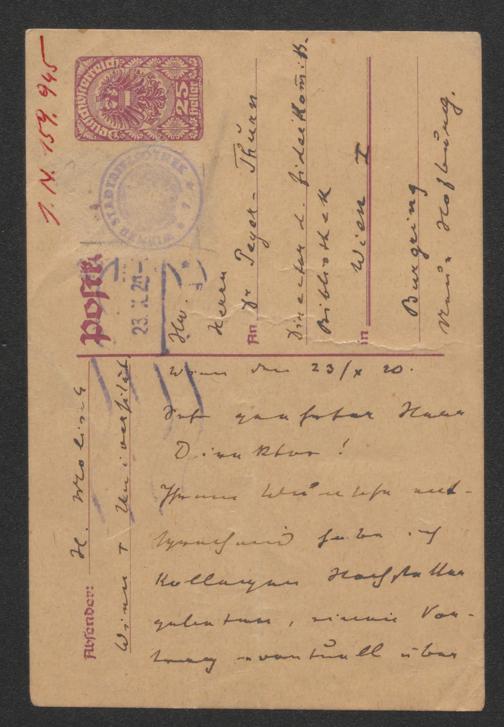 I. N. 159.945
Deutschösterreich
25
Heller
WIENER STADTBIBLIOTHEK
Postk
23. X. 20
Herrn
An Dr Payer-Thurn
Director d. Fideikomiß-
Bibliothek
in Wien I
Burgring
Neue Hofburg.
Absender: H.
Wien I Universität
Wien den 23/X 20.
Sehr geehrter Herr
Direktor!
Ihrem Wunsche ent-
sprechend habe ich
Kollegen
gebeten, einen Vor-
trag eventuell über